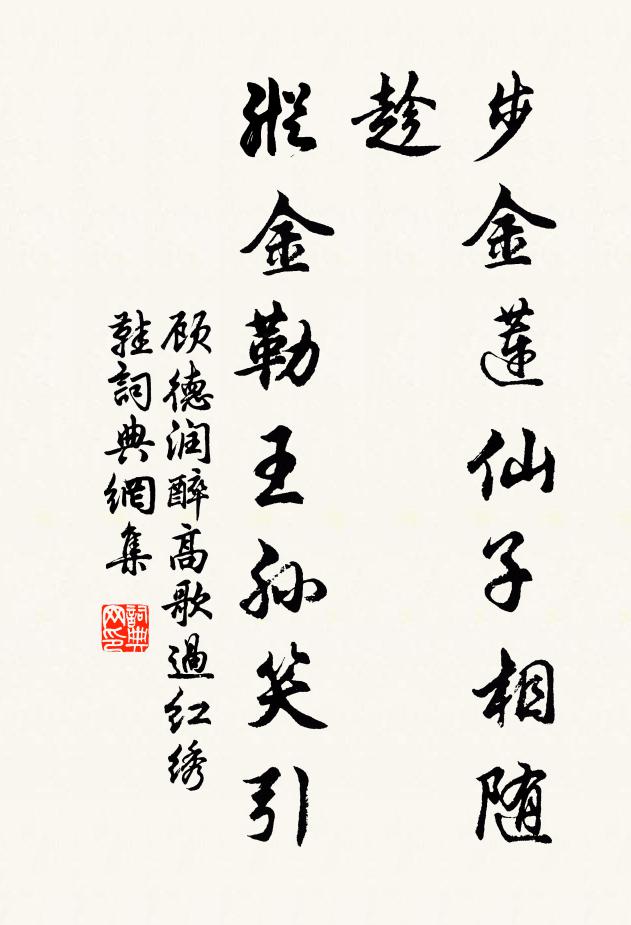 步金蓮仙子相随
趁
縱金勒王孙笑引
顾德润醉高歌過红绣
鞋詞典網集
詞典网印